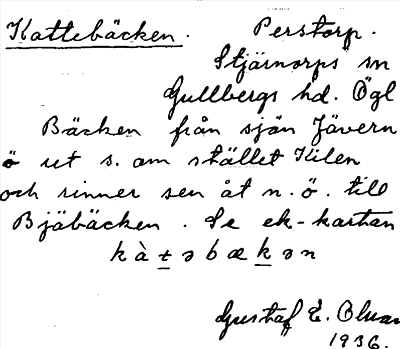 Kattebäcken. Perstorp.
Stjärnorps sn
Gullbergs hd. Ögl
Bäcken från sjön Jävern
ö ut s. om stället Kilen
och rinner sen åt n. ö. till
Bjäbäcken. Se ek-kartan
kàtəbækən
Gustaf E.
1936.